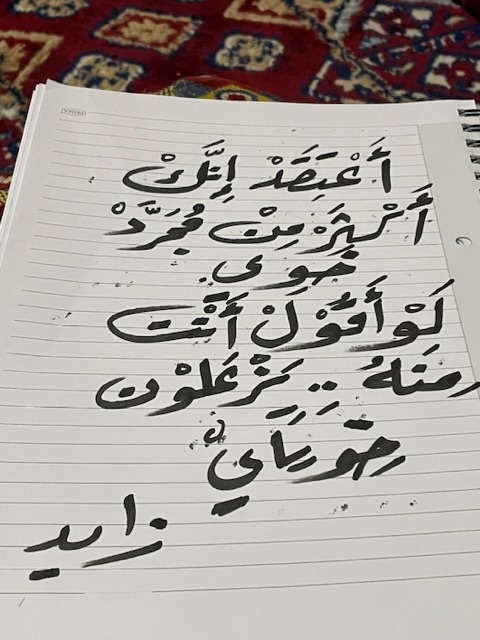 أَعْتِقَدْ إِنَّكْ
أَكْثَرْ مِنْ مُجَرَّدْ
خَوي
لَوْ أَقُوْلْ أَنْت
مِنَهُ .. يَزْعَلوْن
خوِيَايْ
زايد